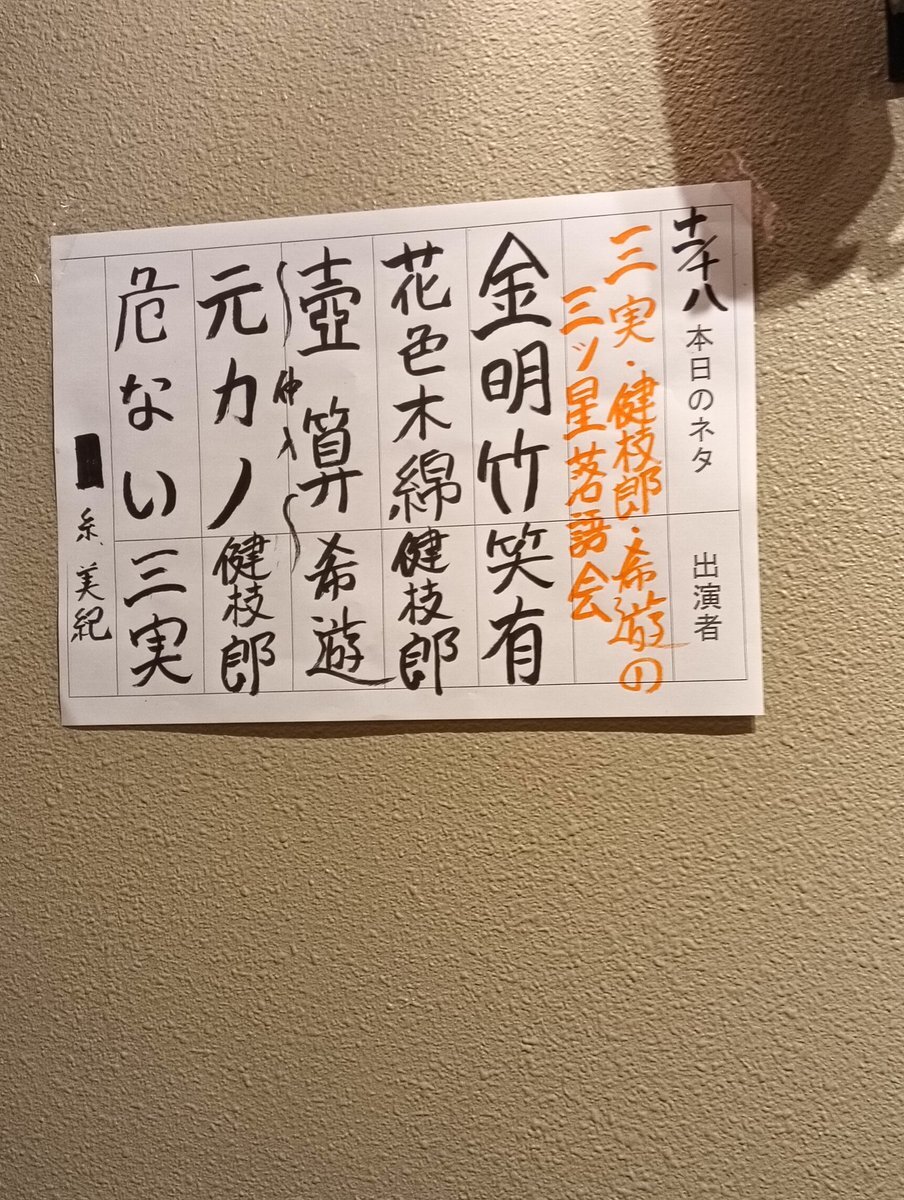 十一/十八 本日のネタ 出演者
三実・健枝郎・希遊の
三ツ星落語会
金明竹 笑有
花色木綿 健枝郎
壺算 希遊
仲入
元カノ 健枝郎
危ない 三実
糸、美紀